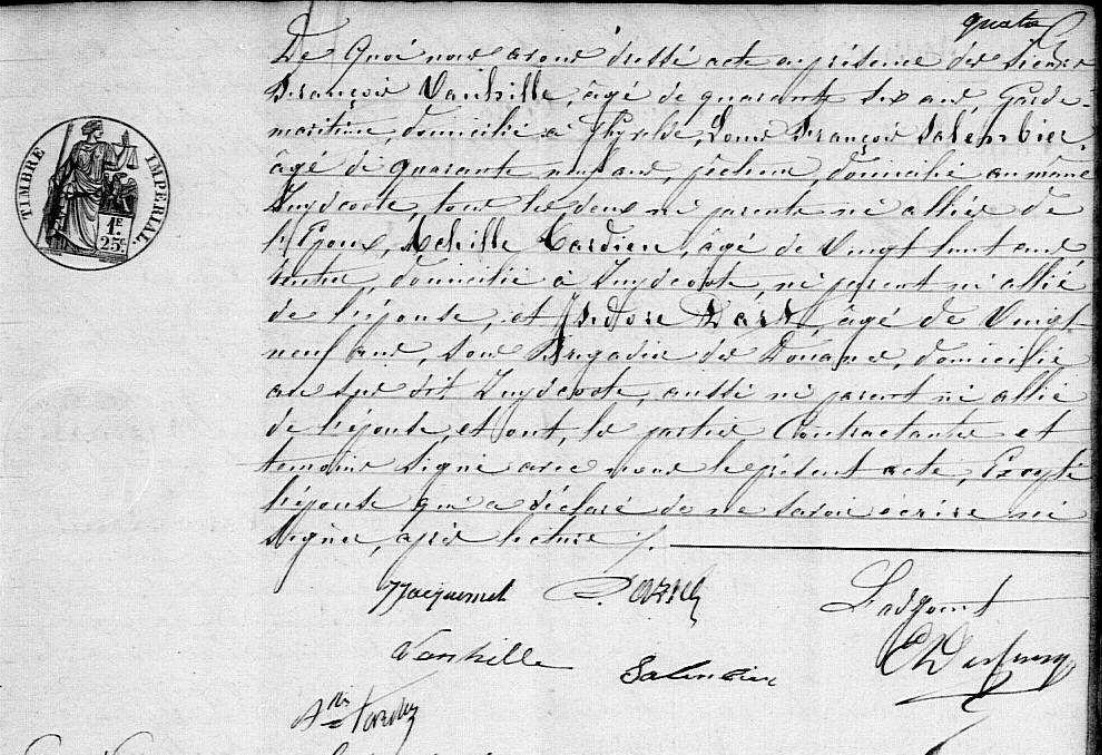 quatre
TIMBRE IMPÉRIAL.
1F.
25C.
De Quoi nous avons dressé acte en présence des Sieurs
François Vanhille, âgé de quarante six ans, Garde-
maritime, domicilié à Ghyvelde, Louis François Salembier,
âgé de quarante neuf ans, pêcheur, domicilié au même
Zuydcoote, tous les deux ni parents ni alliés de
l'Epoux, Achille Tardieu, âgé de Vingt huit ans
rentier, domicilié à Zuydcoote, ni parent ni allié
de l'épouse, et Isidore âgé de Vingt-
neuf ans, Sous Brigadier des Douanes, domicilié
au sus dit Zuydcoote, aussi ni parent ni allié
de l'épouse, et ont, les parties Contractantes et
témoins signé avec nous le présent acte, Excepté
l'épouse qui a déclaré de ne savoir écrire ni
Signer, après lecture /.
Vanhille
Salembier